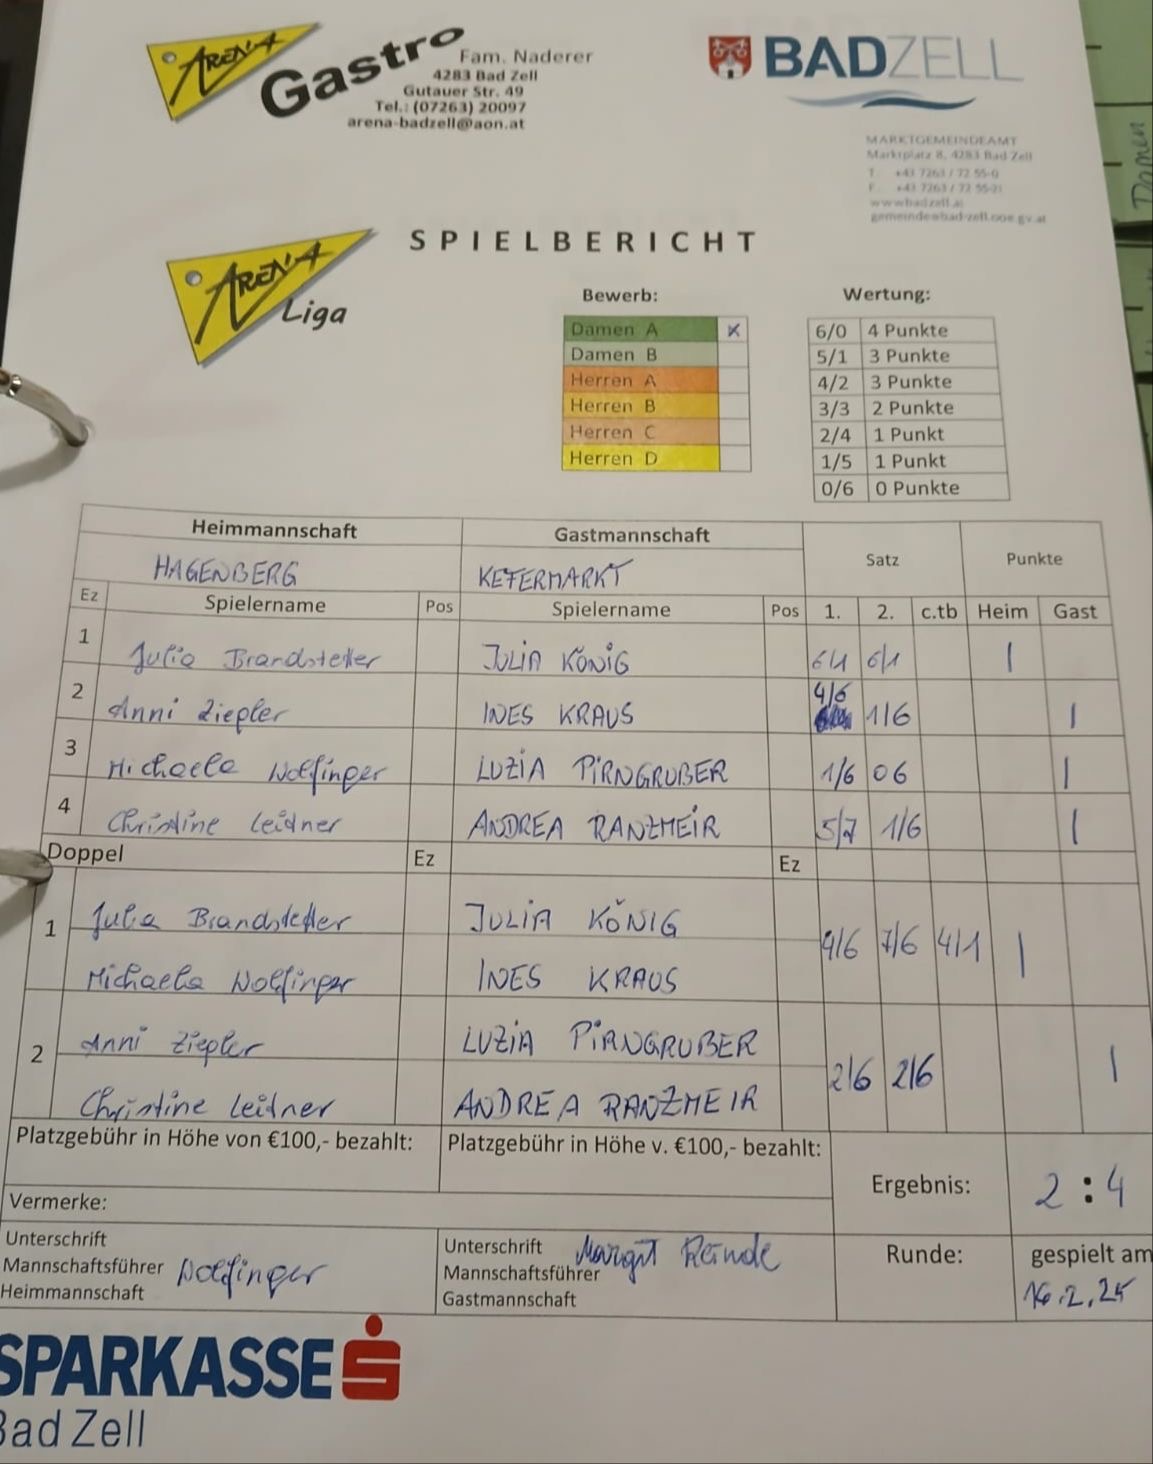 ARENA Gastro
Fam. Naderer
4283 Bad Zell
Gutauer Str. 49
Tel.: (07263) 20097
arena-badzell@aon.at
BADZELL
MARKTGEMEINDEAMT
Marktplatz 8, 4283 Bad Zell
T +43 7263 / 72 55-0
F +43 7263 / 72 55-21
www.badzell.at
gemeinde@bad-zell.ooe.gv.at
Damen
SPIELBERICHT
ARENA Liga
Bewerb: Wertung:
Damen A x 6/0 4 Punkte
Damen B 5/1 3 Punkte
Herren A 4/2 3 Punkte
Herren B 3/3 2 Punkte
Herren C 2/4 1 Punkt
Herren D 1/5 1 Punkt
0/6 0 Punkte
Heimmannschaft Gastmannschaft Satz Punkte
HAGENBERG KEFERMARKT
Ez Spielername Pos Spielername Pos 1. 2. c.tb Heim Gast
1 Julia Brandstetter JULIA KÖNIG 6/1 6/1 |
2 Anni Ziepler INES KRAUS 4/6 1/6 |
3 Michaela Wolfinger LUZIA PIRNGRUBER 1/6 06 |
4 Christine Leidner ANDREA RANZMEIR 5/7 1/6 |
Doppel Ez Ez
1 Julia Brandstetter JULIA KÖNIG 4/6 7/6 4/1 |
Michaela Wolfinger INES KRAUS
2 Anni Ziepler LUZIA PIRNGRUBER 2/6 2/6 |
Christine Leidner ANDREA RANZMEIR
Platzgebühr in Höhe von €100,- bezahlt: Platzgebühr in Höhe v. €100,- bezahlt:
Ergebnis: 2 : 4
Vermerke:
Unterschrift Mannschaftsführer Heimmannschaft Wolfinger
Unterschrift Mannschaftsführer Gastmannschaft Margit
Runde: gespielt am
16.2.25
SPARKASSE
Bad Zell